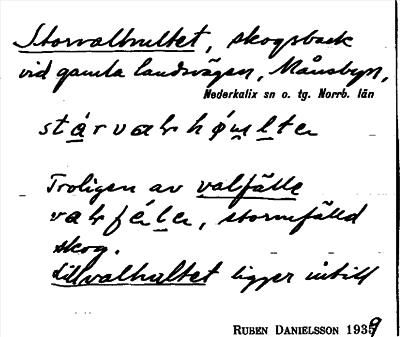 Storvalhultet, skogsback
vid gamla landsvägen, Månsbyn,
Nederkalix sn o. tg. Norrb. län
stárvalhhóulter
Troligen av valfälle
valfæler, stormfälld
skog.
Lillvalhultet ligger intill
RUBEN DANIELSSON 1939